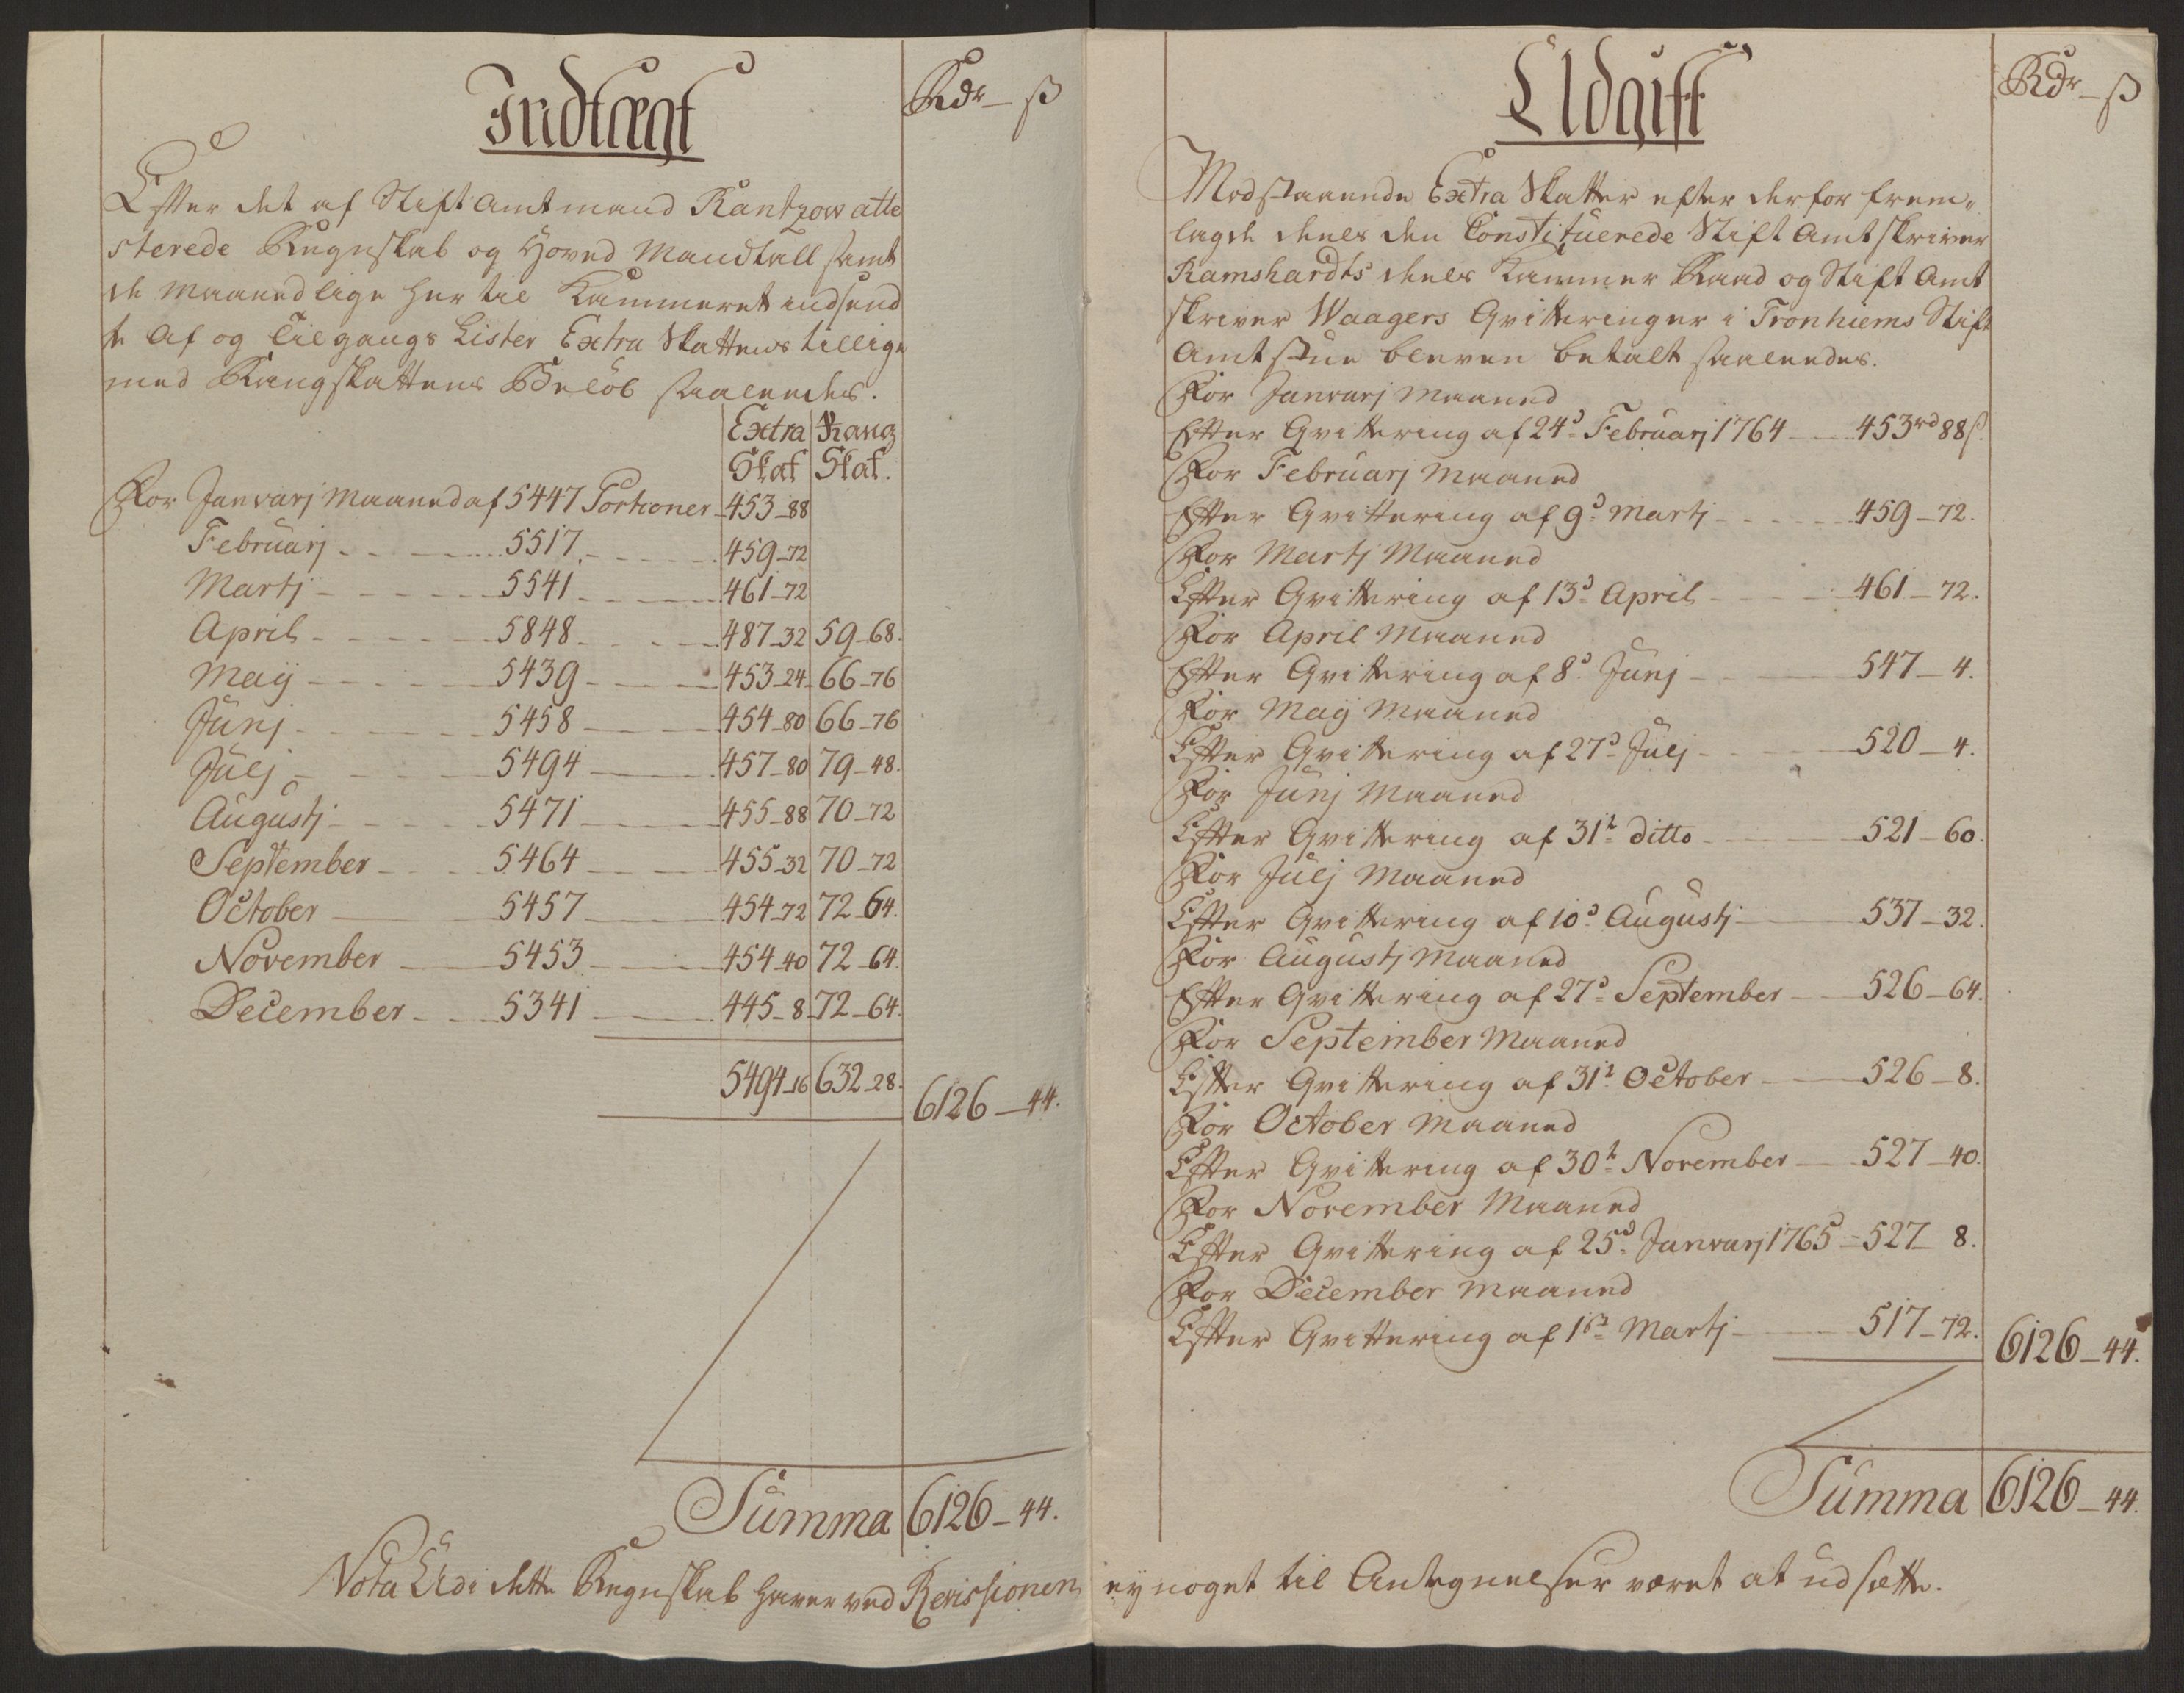 Indtægt
Rdr ẞ
Efter det af Stift Amtmand Rantzow atte
sterede Regnskab og Hoved Mandtall samt
de Maanedlige her til Kammeret indsend
te Af og Tilgangs Lister Extra Skattens tillige
med Rangskattens Beløb saaledes.
Extra Rang
Skat Skat.
For Janvarj Maaned af 5447 Portioner 453_88
Februarj 5517 459_72
Martj 5541 461_72
April 5848 487_32 59_68.
Maij 5439 453_24 66_76
Junj 5458 454_80 66_76
Julj 5494 457_80 79_48.
Augustj 5471 455_88 70_72
September 5464 455_32 70_72
October 5457 454_72 72_64.
November 5453 454_40 72_64.
December 5341 445_8 72_64.
5494_16 632_28. 6126_44.
Summa 6126_44.
Udgift
Rdr ẞ
Modstaaende Extra Skatter efter derfor frem„
lagde deels den Constituerede Stift Amtskriver
Ramshardts deels Kammer Raad og Stift Amt
skriver Waagers Qvitteringer i Tronhiems Stift
Amtstue bleven betalt saaledes.
For Janvarj Maaned
Efter Qvittering af 24d Februarj 1764 453rd 88ß.
For Februarj Maaned
Efter Qvittering af 9d Martj 459_72.
For Martj Maaned
Efter Qvittering af 13d April 461_72.
For April Maaned
Efter Qvittering af 8d Junj 547_4.
For Maij Maaned
Efter Qvittering af 27d Julj 520_4.
For Junj Maaned
Efter Qvittering af 31t ditto 521_60.
For Julj Maaned
Efter Qvittering af 10d Augustj 537_32.
For Augustj Maaned
Efter Qvittering af 27d September 526_64.
For September Maaned
Efter Qvittering af 31t October 526_8.
For October Maaned
Efter Qvittering af 30t November 527_40.
For November Maaned
Efter Qvittering af 25d Janvarj 1765 527_8.
For December Maaned
Efter Qvittering af 1st Martj 517_72. 6126_44.
Summa 6126_44.
Nota Udi dette Regnskab haver ved Revissionen ey noget til Antegnelser været at udsætte.